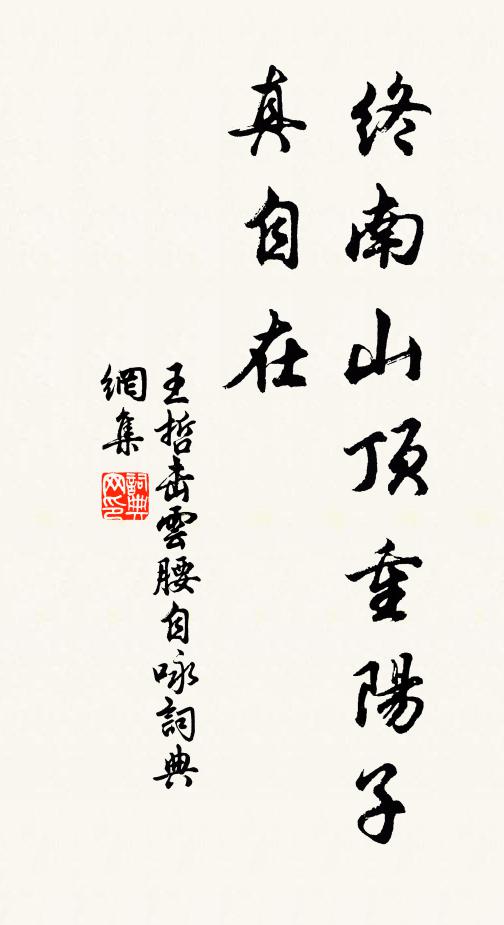 终南山顶重陽子
真自在
王哲击雲腰自咏詞典
網集
詞典
网印